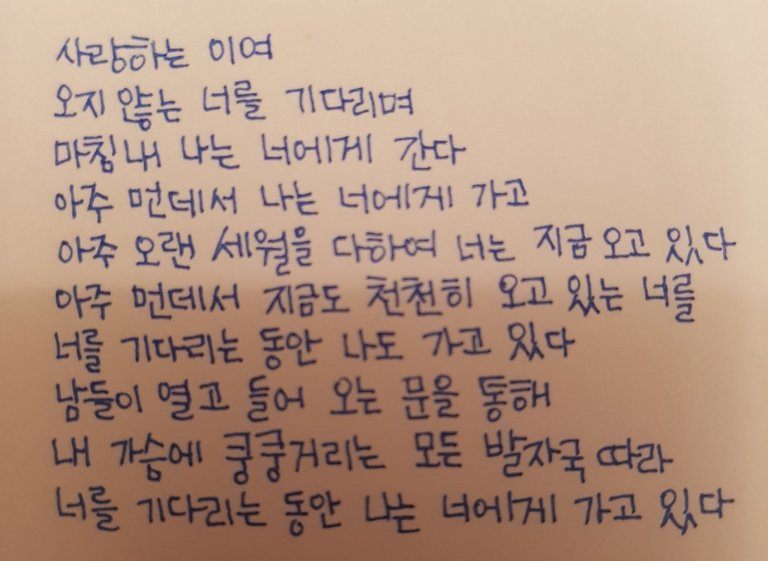 사랑하는 이여
오지 않는 너를 기다리며
마침내 나는 너에게 간다
아주 먼데서 나는 너에게 가고
아주 오랜 세월을 다하여 너는 지금 오고 있다
아주 먼데서 지금도 천천히 오고 있는 너를
너를 기다리는 동안 나도 가고 있다
남들이 열고 들어 오는 문을 통해
내 가슴에 쿵쿵거리는 모든 발자국 따라
너를 기다리는 동안 나는 너에게 가고 있다